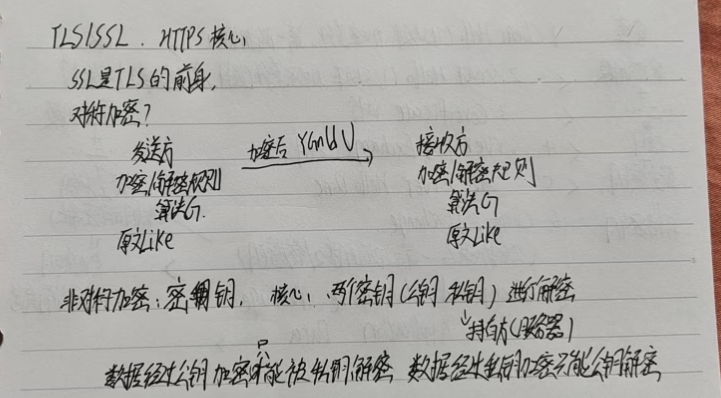 TLS/SSL. HTTPS核心,
SSL是TLS的前身,
对称加密?
发送方 加密后 YGnUdU 接收方
加密/解密规则 加密/解密规则
算法G. 算法G
原文Like 原文Like
非对称加密:密钥, 核心, 两个密钥(公钥 私钥)进行解密
持有方(服务器)
数据经过公钥加密只能被私钥解密 数据经过私钥加密只能公钥解密